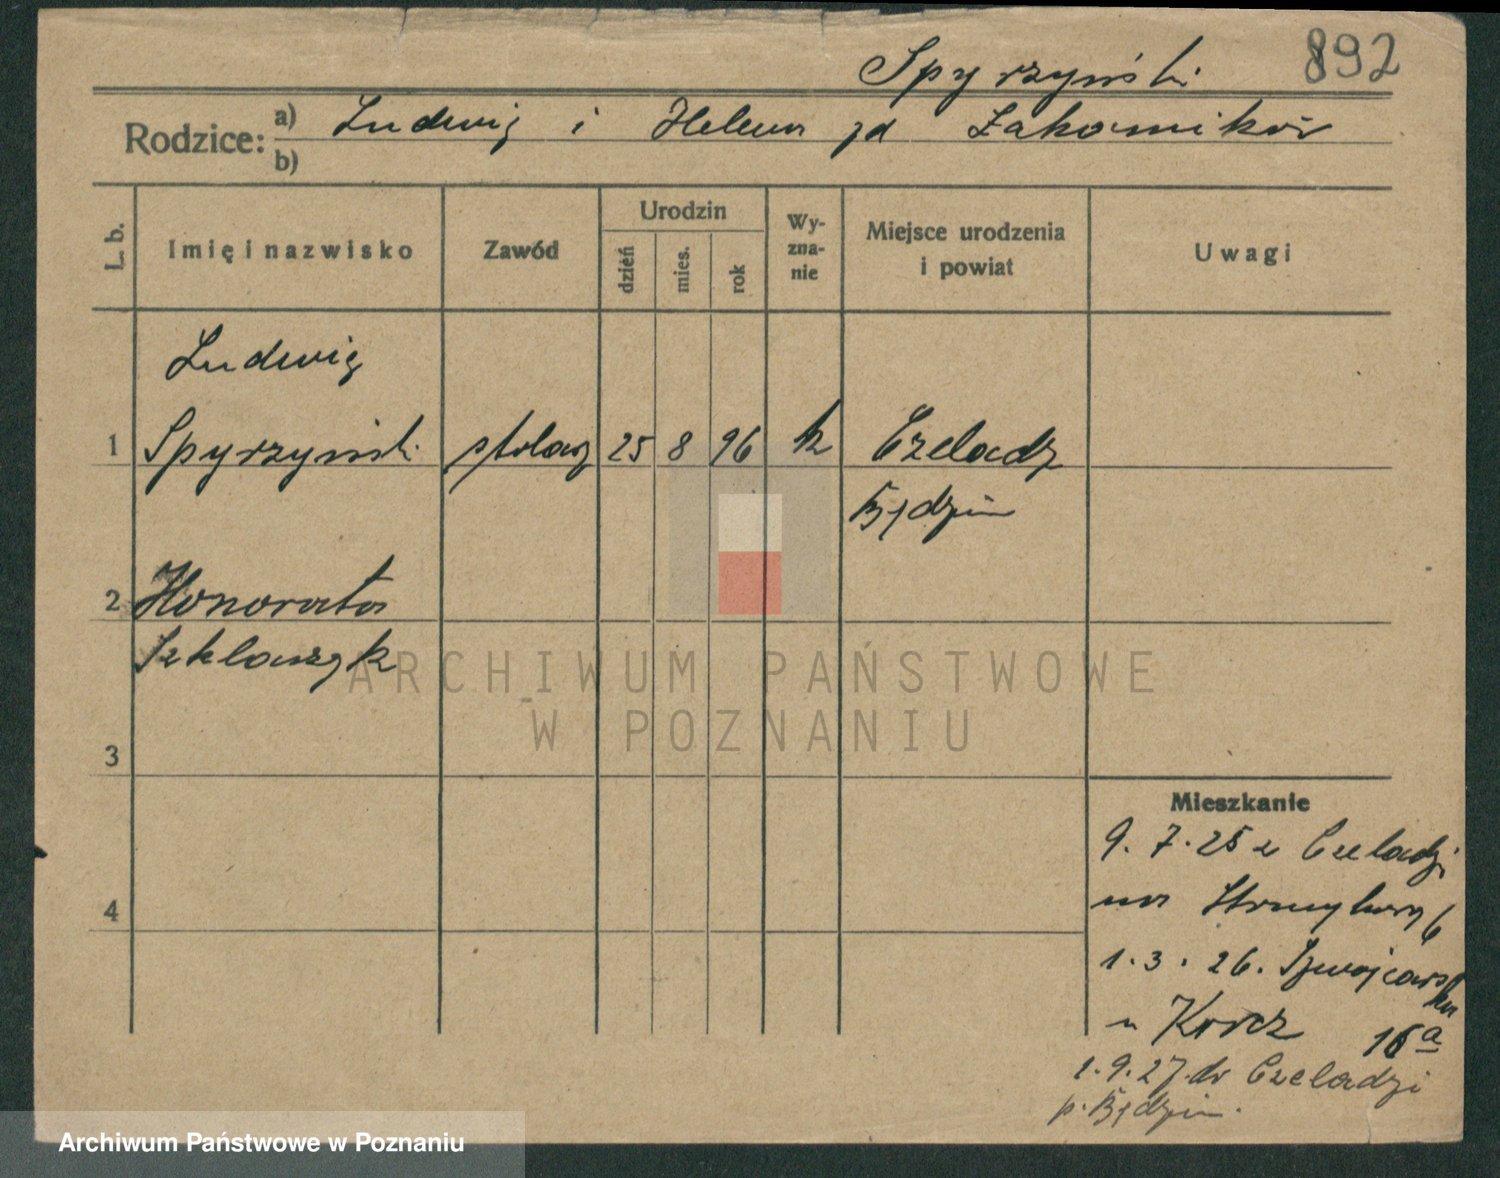 892
Spyrzyński
Rodzice: a) Ludwig i Helena zd
b)
L. b.
Imię i nazwisko
Zawód
Urodzin
dzień
mies.
rok
Wy-
zna-
nie
Miejsce urodzenia
i powiat
Uwagi
Ludwig
1 Spyrzyński stolarz 25 8 96 k Czeladz
Będzin
2 Honorata
Szklarzyk
3
4
Mieszkanie
9. 7. 25 z Czeladzi
na 6
1. 3. 26. Szwajcarska
u Korcz 16a
1. 9. 27. do Czeladzi
p. Będzin.
ARCHIWUM PAŃSTWOWE
W POZNANIU
Archiwum Państwowe w Poznaniu